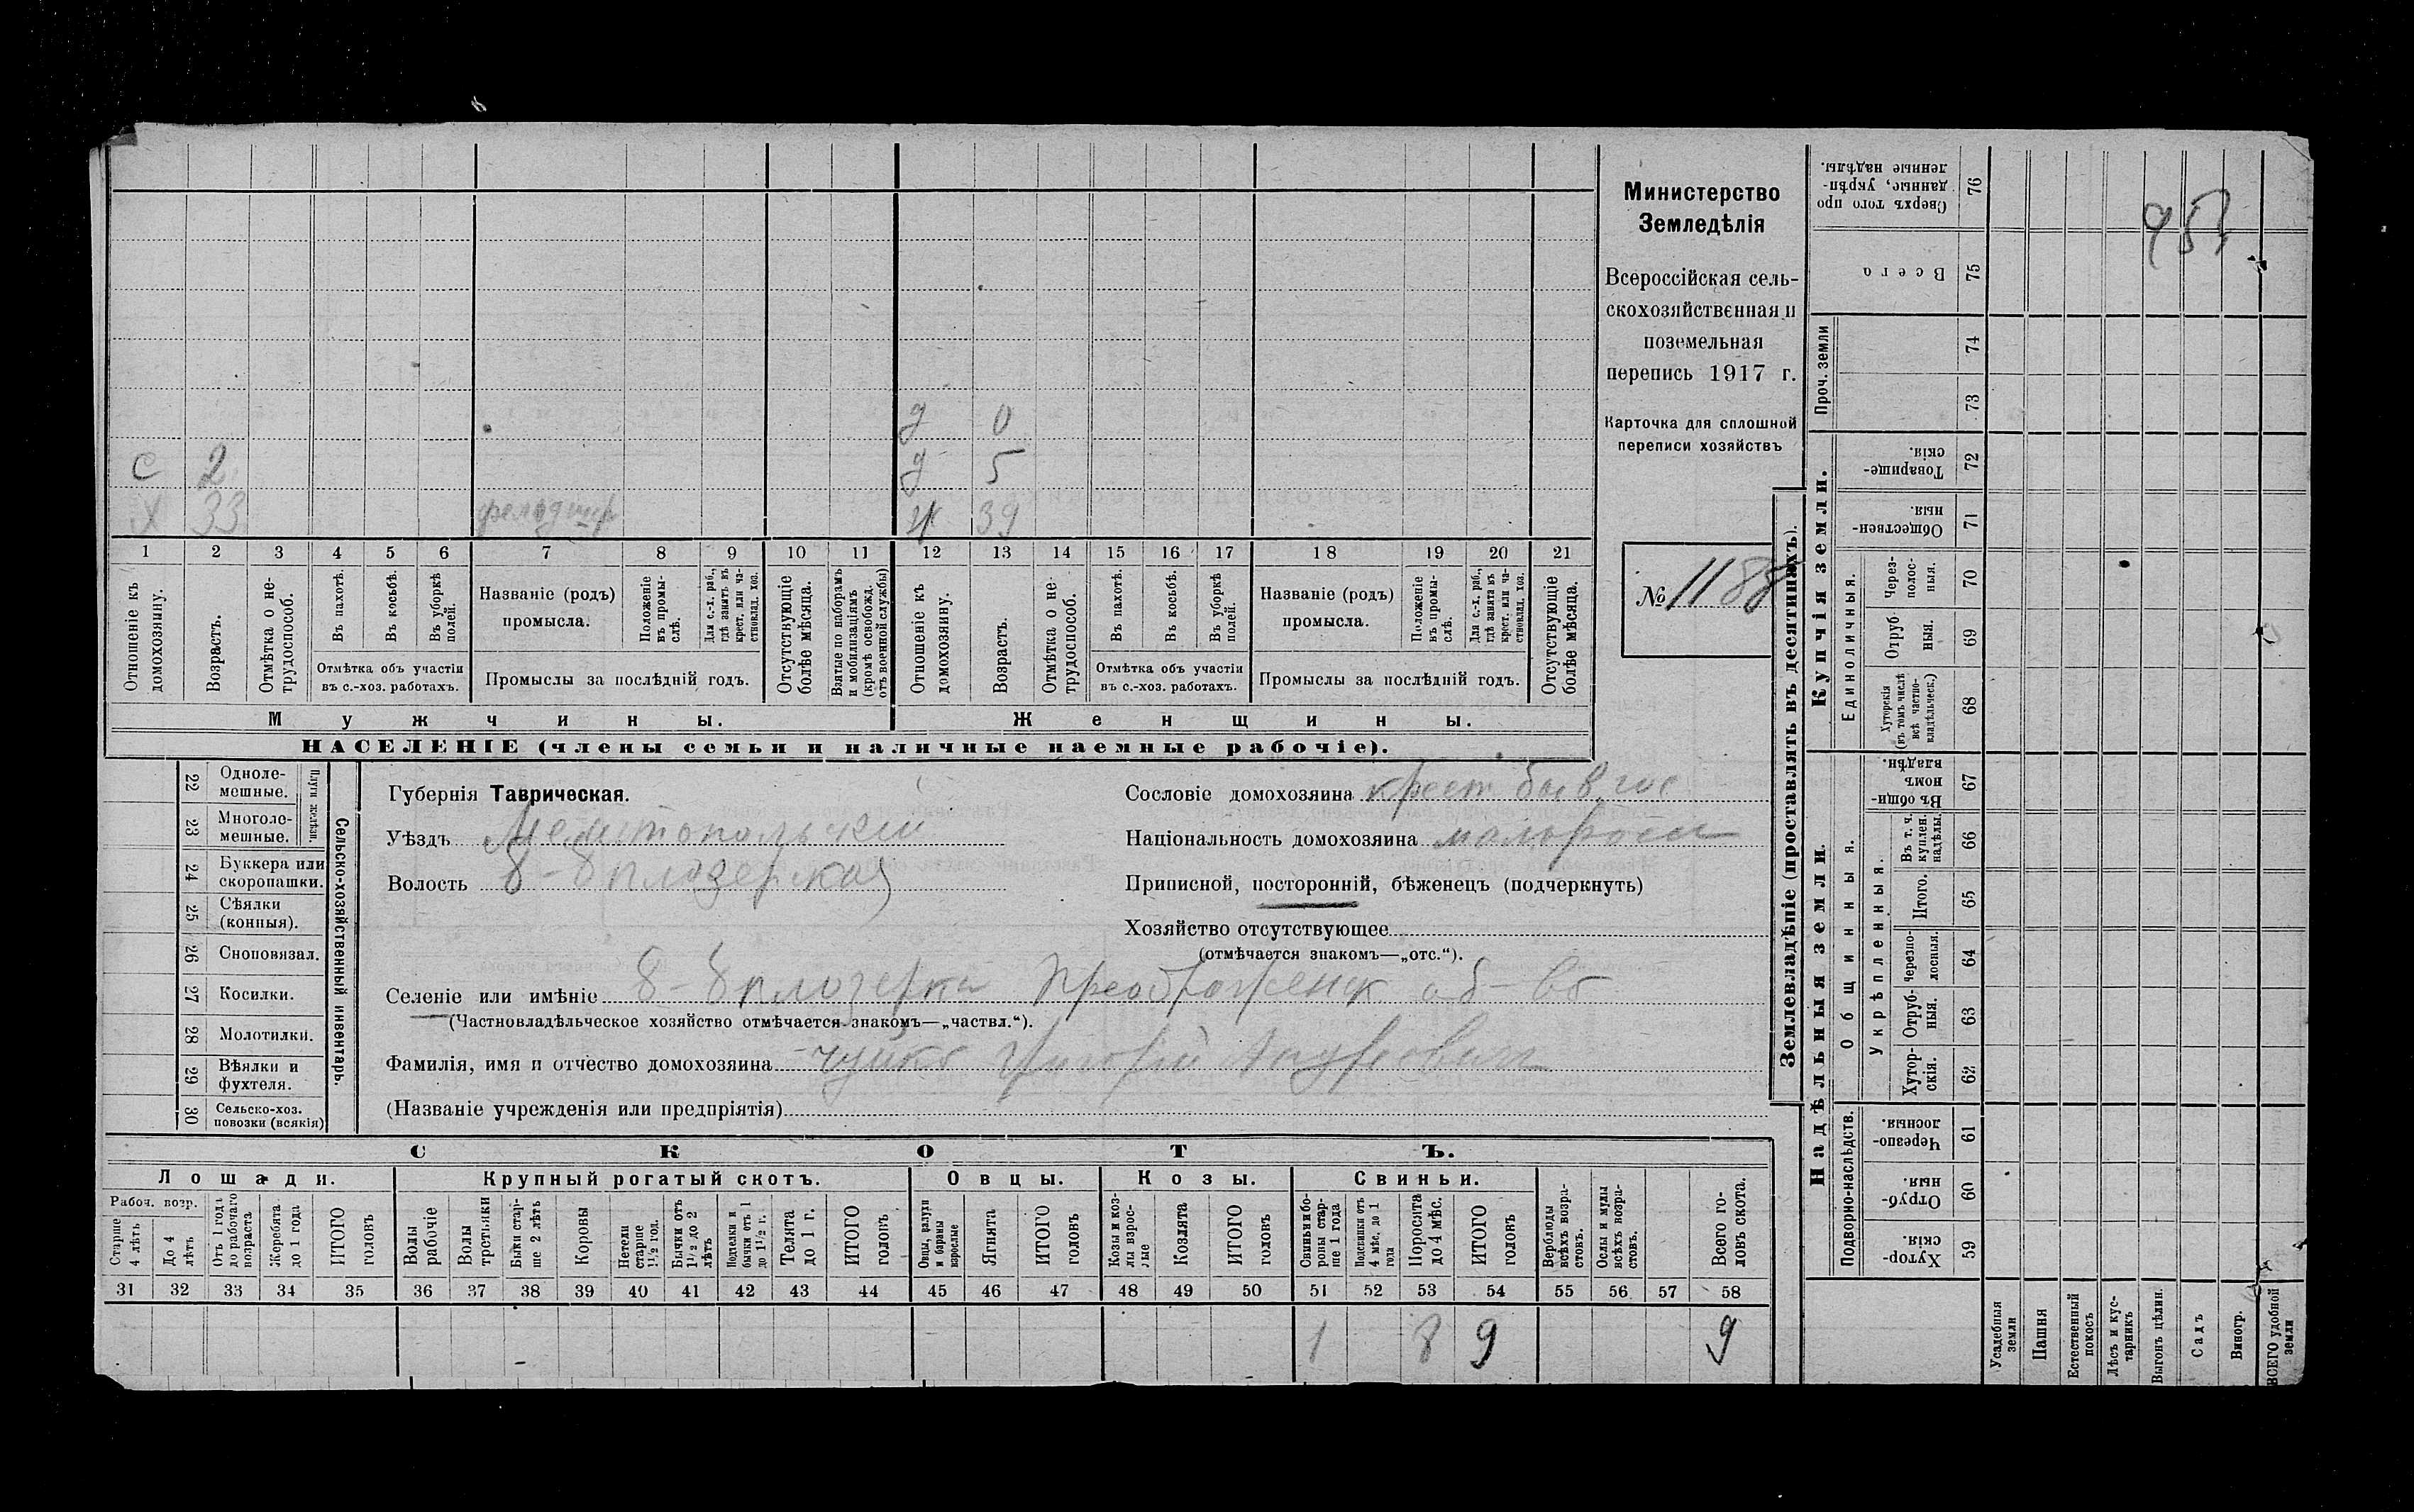 Министерство
Земледѣлія
Всероссійская сель-
скохозяйственная и
поземельная
перепись 1917 г.
Карточка для сплошной
переписи хозяйствъ
№ 1188
д 0
с 2 д 5
х 33 фельдшер ж 39
1 2 3 4 5 6 7 8 9 10 11 12 13 14 15 16 17 18 19 20 21
Отношеніе къ домохозяину.
Возрастъ.
Отмѣтка о не-трудоспособ.
Въ пахотѣ.
Въ косьбѣ.
Въ уборкѣ полей.
Отмѣтка объ участіи
въ с.-хоз. работахъ.
Названіе (родъ)
промысла.
Положеніе въ промы-слѣ.
Для с.-х. раб., гдѣ занятъ въ крест. или ча-стновлад. хоз.
Промыслы за послѣдній годъ.
Отсутствующіе болѣе мѣсяца.
Взятые по наборамъ и мобилизаціямъ (кромѣ освобожд. отъ военной службы)
Отношеніе къ домохозяину.
Возрастъ.
Отмѣтка о не-трудоспособ.
Въ пахотѣ.
Въ косьбѣ.
Въ уборкѣ полей.
Отмѣтка объ участіи
въ с.-хоз. работахъ.
Названіе (родъ)
промысла.
Положеніе въ промы-слѣ.
Для с.-х. раб., гдѣ занята въ крест. или ча-стновлад. хоз.
Промыслы за послѣдній годъ.
Отсутствующіе болѣе мѣсяца.
Мужчины. Женщины.
НАСЕЛЕНІЕ (члены семьи и наличные наемные рабочіе).
22 Одноле-мешные.
23 Многоле-мешные.
24 Буккера или скоропашки.
25 Сѣялки (конныя).
26 Сноповязал.
27 Косилки.
28 Молотилки.
29 Вѣялки и фухтеля.
30 Сельско-хоз. повозки (всякія)
Сельско-хозяйственный инвентарь.
Губернія Таврическая.
Уѣздъ Мелитопольскій
Волость Б-Бѣлозерская
Сословіе домохозяина крест. быв. гос
Національность домохозяина малоросс
Приписной, посторонній, бѣженецъ (подчеркнуть)
Хозяйство отсутствующее
(отмѣчается знакомъ—„отс.“).
Селеніе или имѣніе Б-Бѣлозерка Преображенск об-во
(Частновладѣльческое хозяйство отмѣчается знакомъ—„частвл.“).
Фамилія, имя и отчество домохозяина Чуйко Григорій
(Названіе учрежденія или предпріятія)
СКОТЪ.
Лошади. Крупный рогатый скотъ. Овцы. Козы. Свиньи.
Рабоч. возр.
Старше 4 лѣтъ
До 4 лѣтъ
Отъ 1 года до рабочаго возраста
Жеребята до 1 года
ИТОГО головъ
Волы рабочіе
Волы третьяки
Быки стар-ше 2 лѣтъ
Коровы
Нетели старше 1½ год.
Бычки отъ 1½ до 2 лѣтъ
Подтелки и бычки отъ 1 до 1½ г.
Телята до 1 г.
ИТОГО головъ
Овцы, валухи и бараны взрослые
Ягнята
ИТОГО головъ
Козы и коз-лы взрос-лые
Козлята
ИТОГО головъ
Свиньи и бо-ровы стар-ше 1 года
Подсвинки отъ 4 мѣс. до 1 года
Поросята до 4 мѣс.
ИТОГО головъ
Верблюды всѣхъ возра-стовъ.
Ослы и мулы всѣхъ возра-стовъ.
Всего го-ловъ скота.
31 32 33 34 35 36 37 38 39 40 41 42 43 44 45 46 47 48 49 50 51 52 53 54 55 56 57 58
1 8 9 9
Землевладѣніе (проставлять въ десятинахъ).
Купчія земли.
Надѣльныя земли.
Проч. земли
Единоличныя.
Общинныя.
Укрѣпленныя.
Подворно-наслѣдств.
Сверхъ того про данные, укрѣп-ленные надѣлы. 76
Всего 75
74
73
Товарище-скія. 72
Обществен-ныя. 71
Через-полос-ныя. 70
Отруб-ныя. 69
Хуторскія (въ томъ числѣ всѣ частно-владѣльческ.) 68
Въ общи-номъ владѣн. 67
Въ т. ч. куплен. надѣлы. 66
Итого. 65
Черезпо-лосныя. 64
Отруб-ныя. 63
Хутор-скія. 62
Черезпо-лосныя. 61
Отруб-ныя. 60
Хутор-скія. 59
Усадебныя земли
Пашня
Естественный покосъ
Лѣсъ и кус-тарникъ
Выгонъ цѣлин.
Садъ
Виногр.
ВСЕГО удобной земли